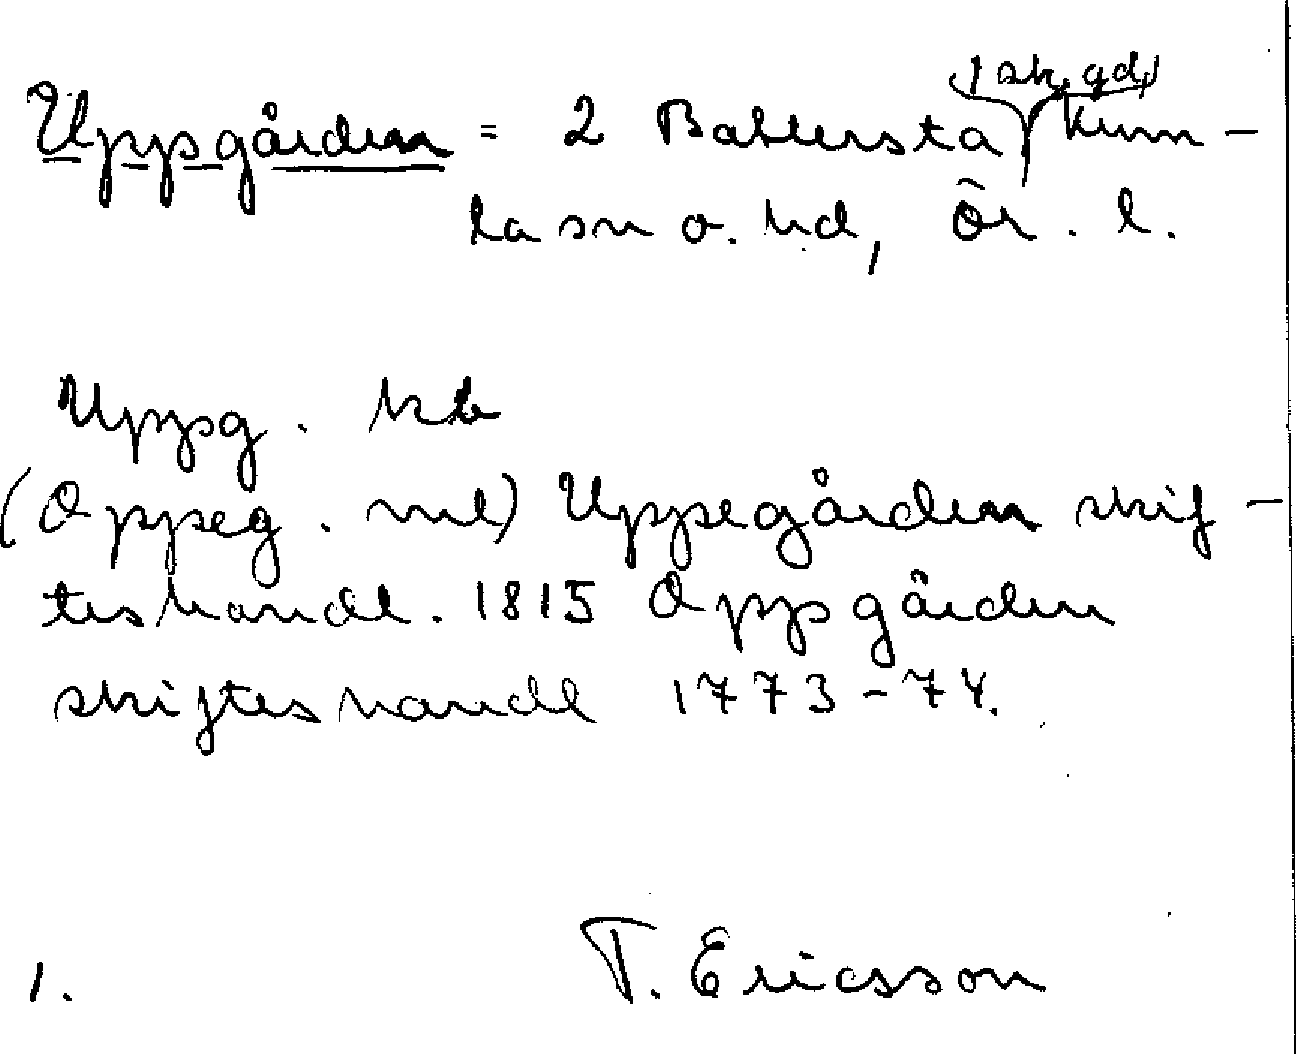 1 sk, gd,
Uppgården = 2 Ballersta Kum-
la sn o. hd, Ör. l.
Uppg. kb
(Oppeg. ml) Uppegården skif-
teshandl. 1815 Oppgården
skifteshandl 1773-74.
1. T. Ericsson